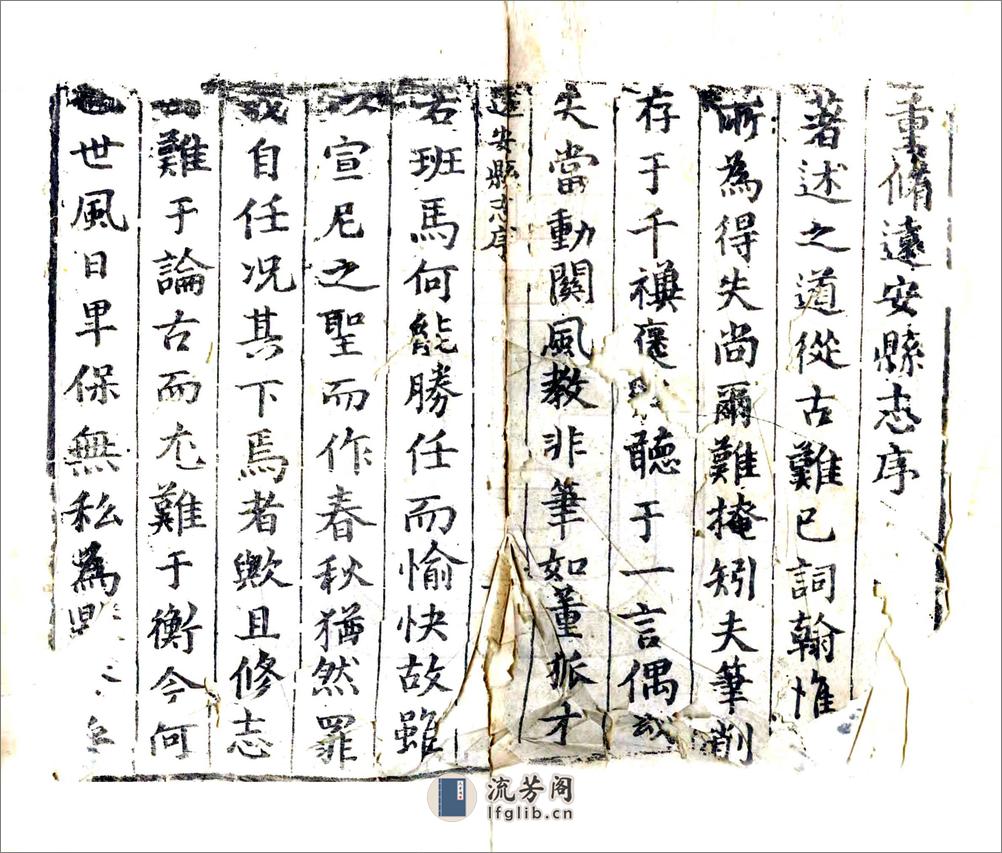 重脩遠安縣志序
著述之道從古難已詞翰惟
所為得失尚爾難掩矧夫筆削
存于千禩褒聽于一言偶或
失當動關風教非筆如董狐才
遠安縣志序
若班馬何能勝任而愉快故雖
以宣尼之聖而作春秋猶然罪
我自任况其下焉者歟且修志
難于論古而尤難于衡今何
也世風日卑保無私為
流芳阁
lfglib.cn